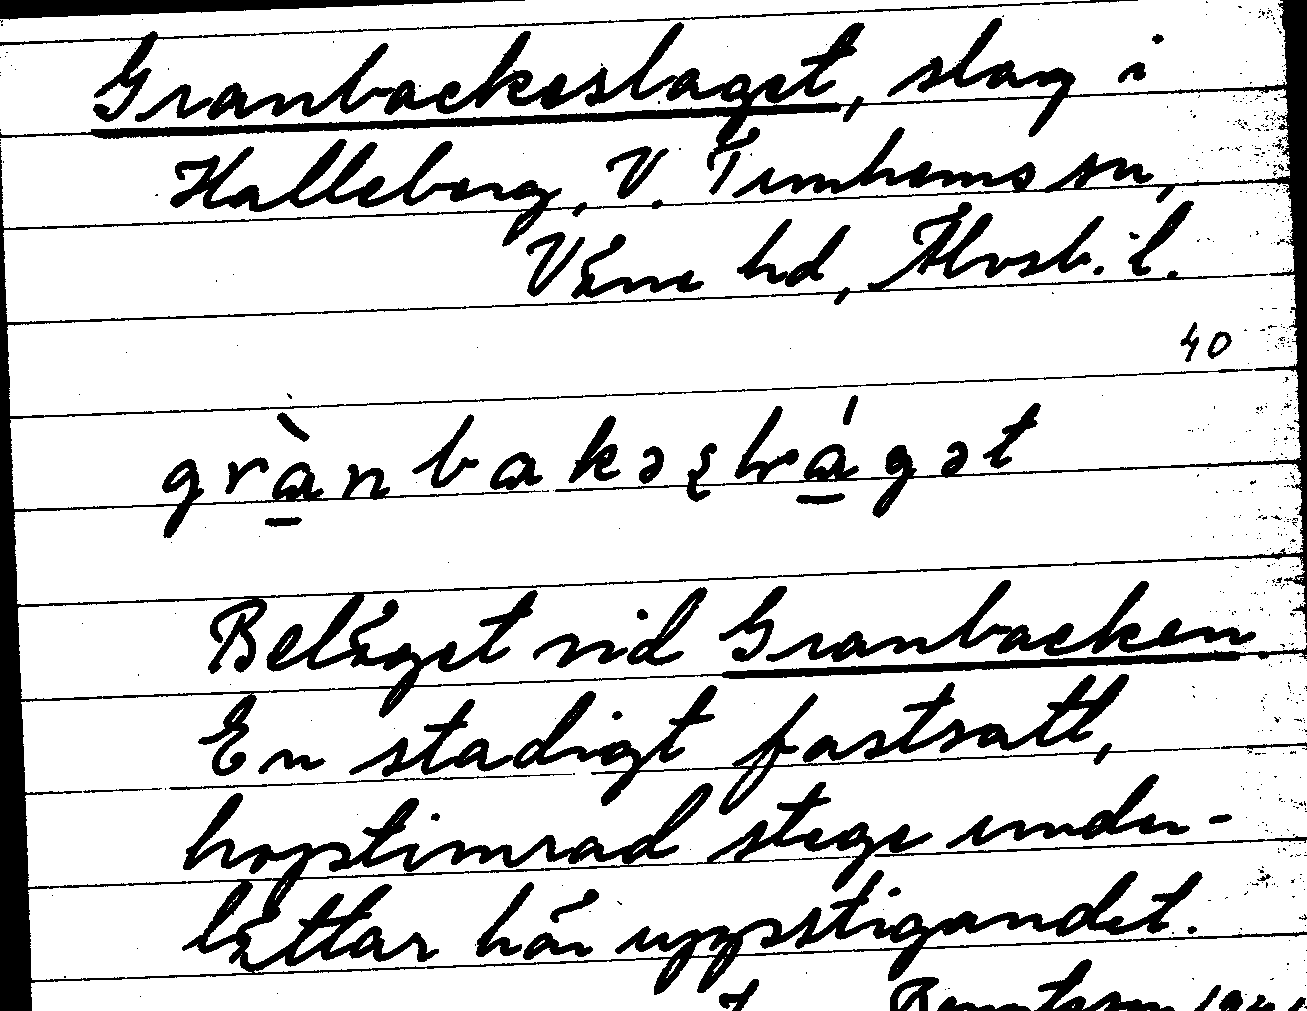 Granbackeslaget, slag i
Halleberg, V. Tunhems sn,
Väne hd, Älvsb. l.
40
grànbakəşlrágət
Beläget vid Granbacken.
En stadigt fastsatt,
hoptimrad stege under-
lättar här uppstigandet.
Bengtsson